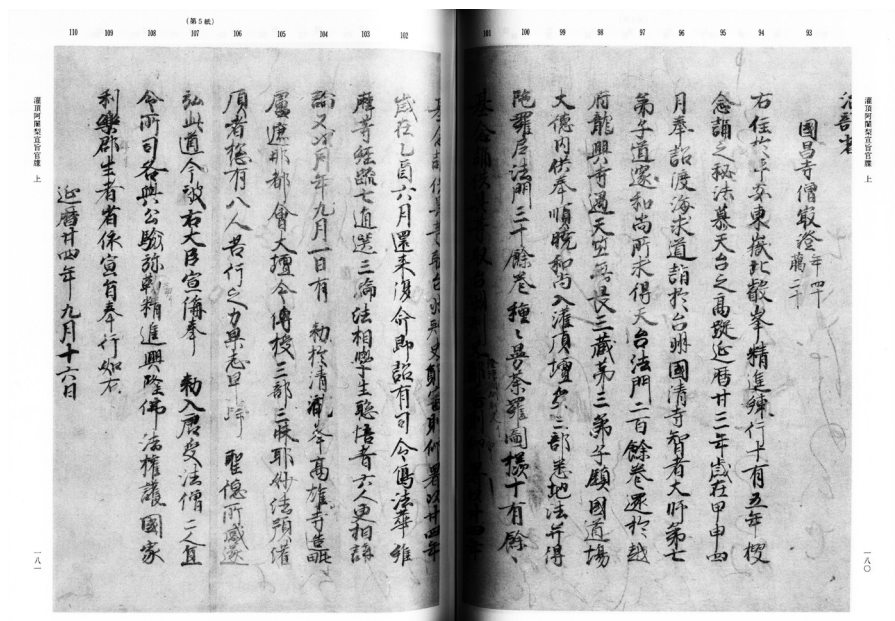 93 94 95 96 97 98 99 100 101
治部省
國昌寺僧最澄 年四十 臈二十
右住於平安東嶽比叡峯精進練行十有五年搜
念誦之秘法慕天台之高蹤延暦廿三年歳在甲申四
月奉詔渡海求道詣於台州國清寺智者大師第七
弟子道邃和尚所求得天台法門二百餘巻還於越
府龍興寺遇天竺無畏三蔵第三弟子鎮國道場
大徳内供奉順暁和尚入灌頂壇受三部悉地法并得
陀羅尼法門三十餘巻種〻曼荼羅圖様十有餘〻
基念誦供具等
灌頂阿闍梨宣旨官牒 上
一八〇
(第5紙)
102 103 104 105 106 107 108 109 110
署以廿四年
歳在乙酉六月還来復命即詔有司令寫法華維
摩等経疏七道選三論法相學生聡悟者六人更相講
論又同年九月一日有 勅於清瀧峯高雄寺造毗
盧遮那都會大壇令傳授三部三昧耶妙法預灌
頂者惣有八人苦行之力果志早 聖徳所感遂
弘此道今被右大臣宣偁奉 勅入唐受法僧二人宜
令所司各與公驗弥勤精進興隆佛法擁護國家
利樂郡生者省依宣旨奉行如右
延暦廿四年九月十六日
灌頂阿闍梨宣旨官牒 上
一八一